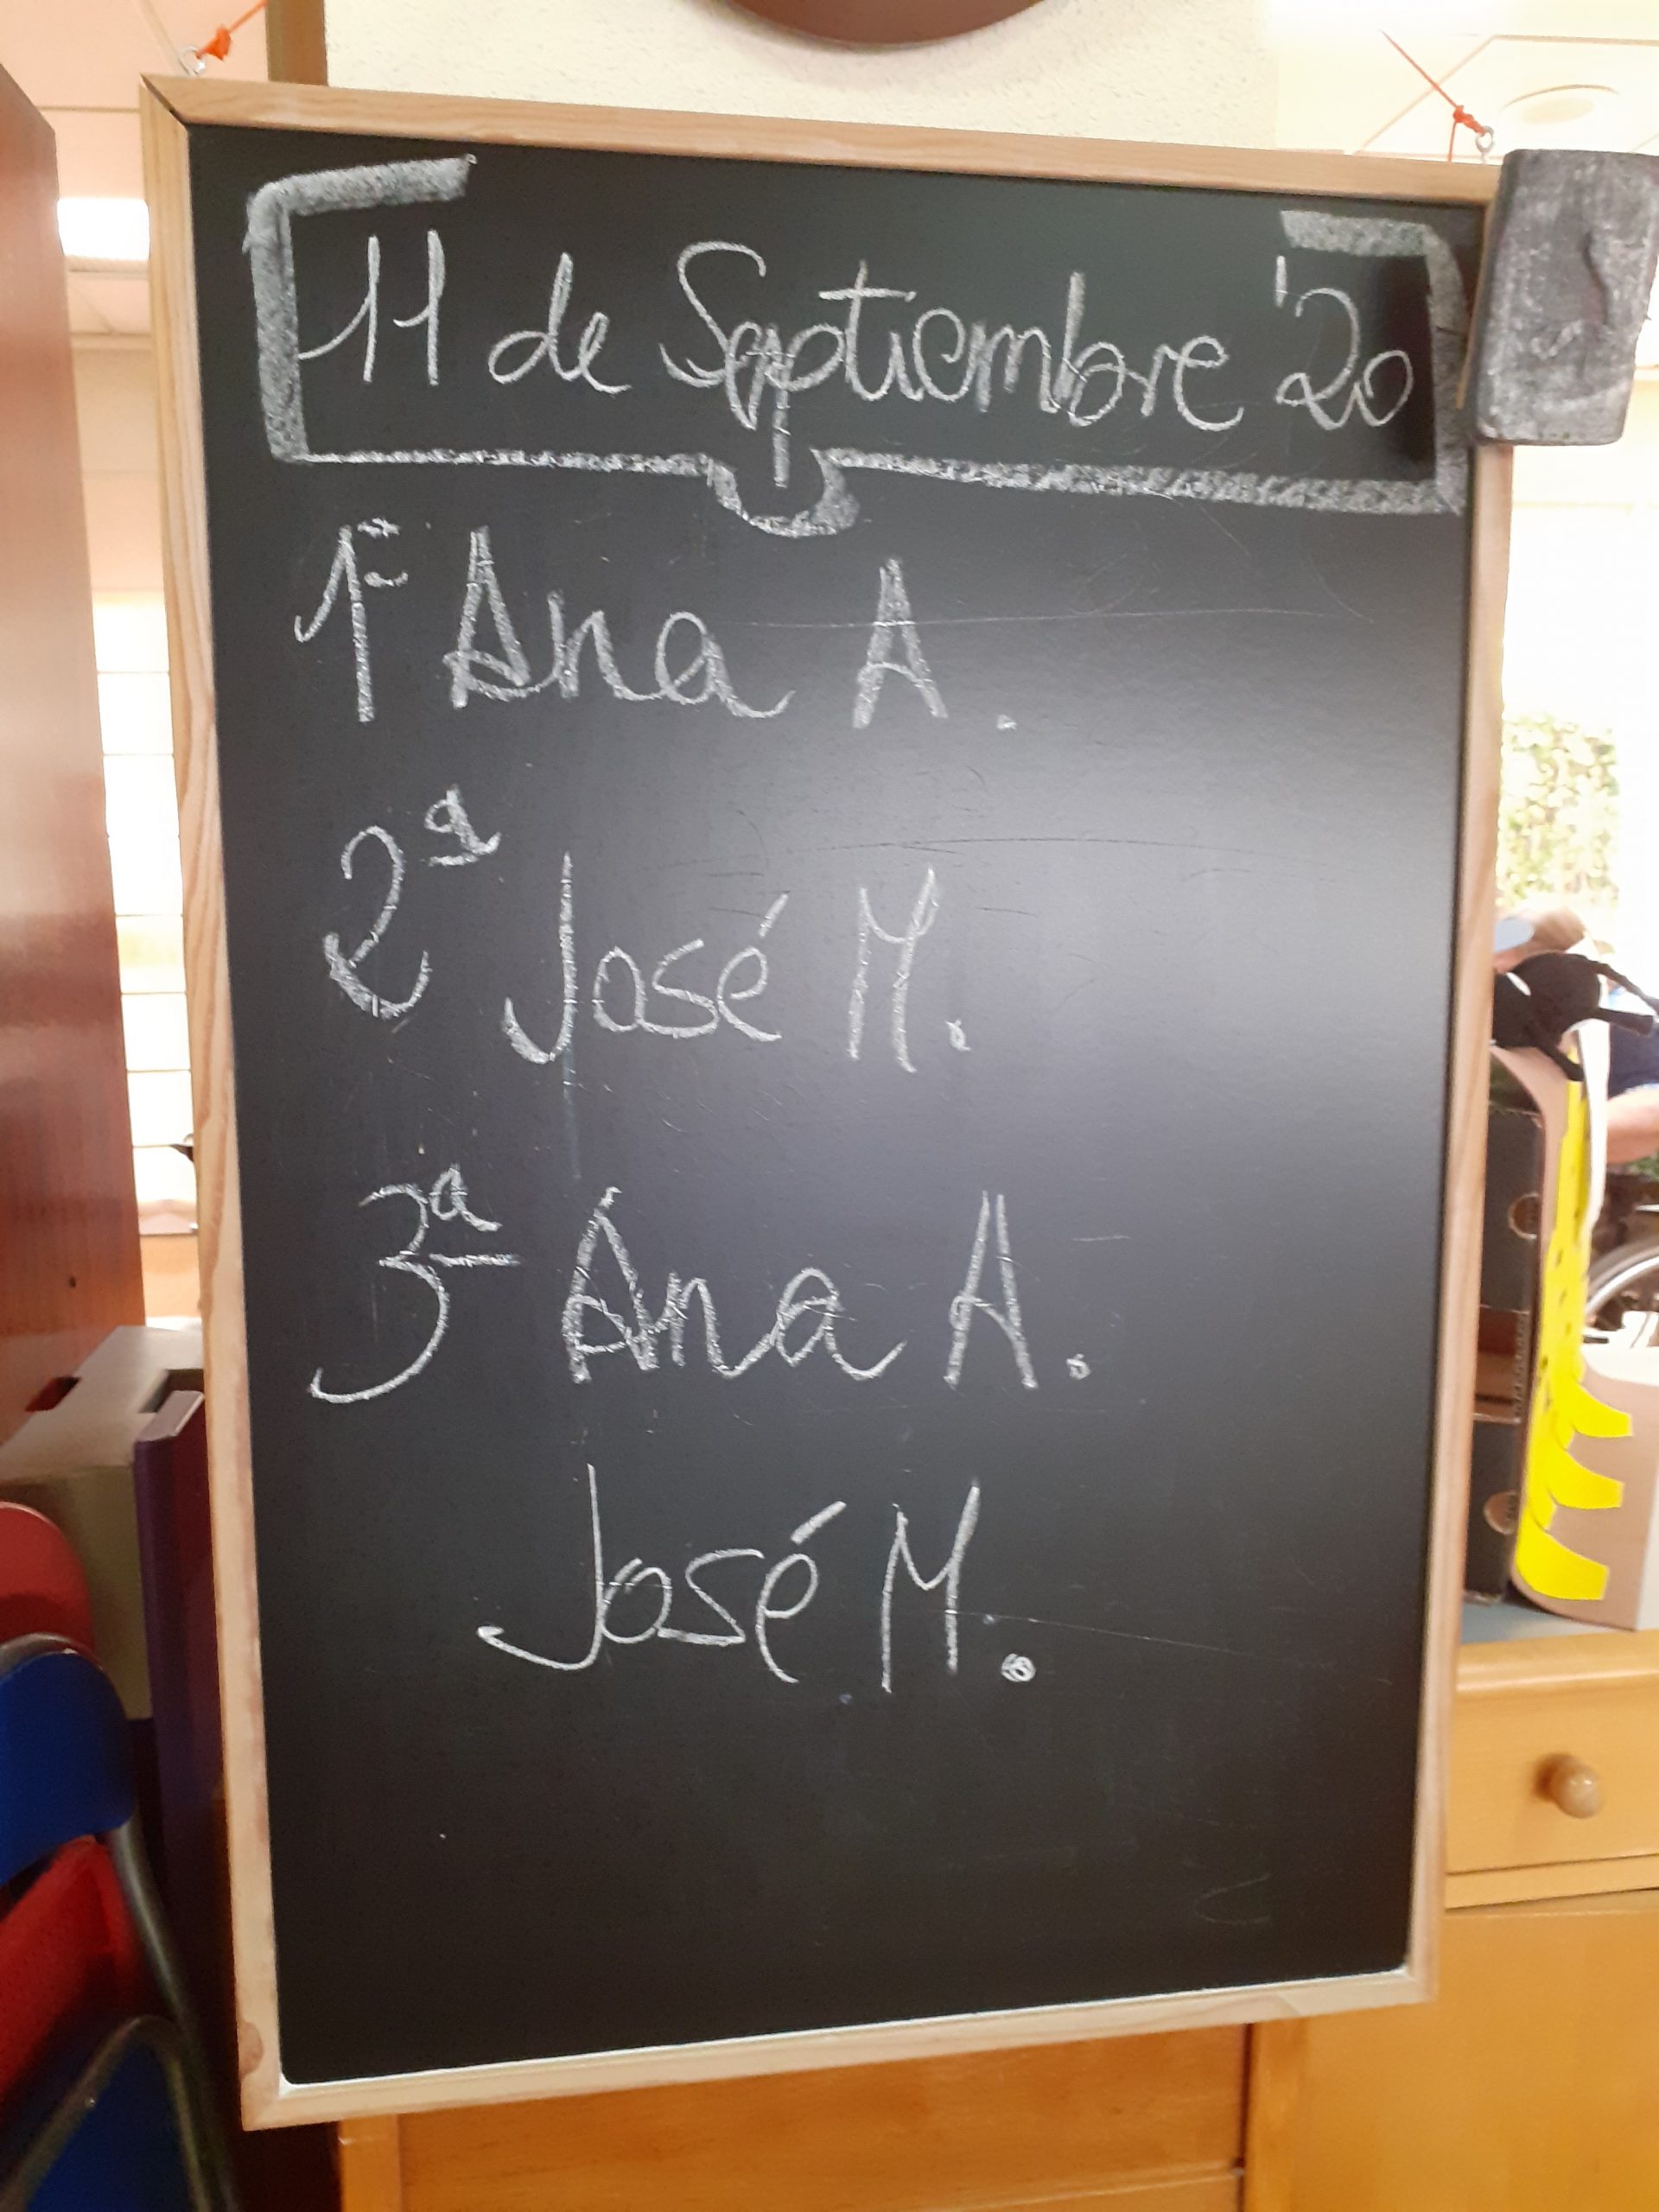 11 de Septiembre '20
1ª Ana A.
2ª José M.
3ª Ana A.
José M.